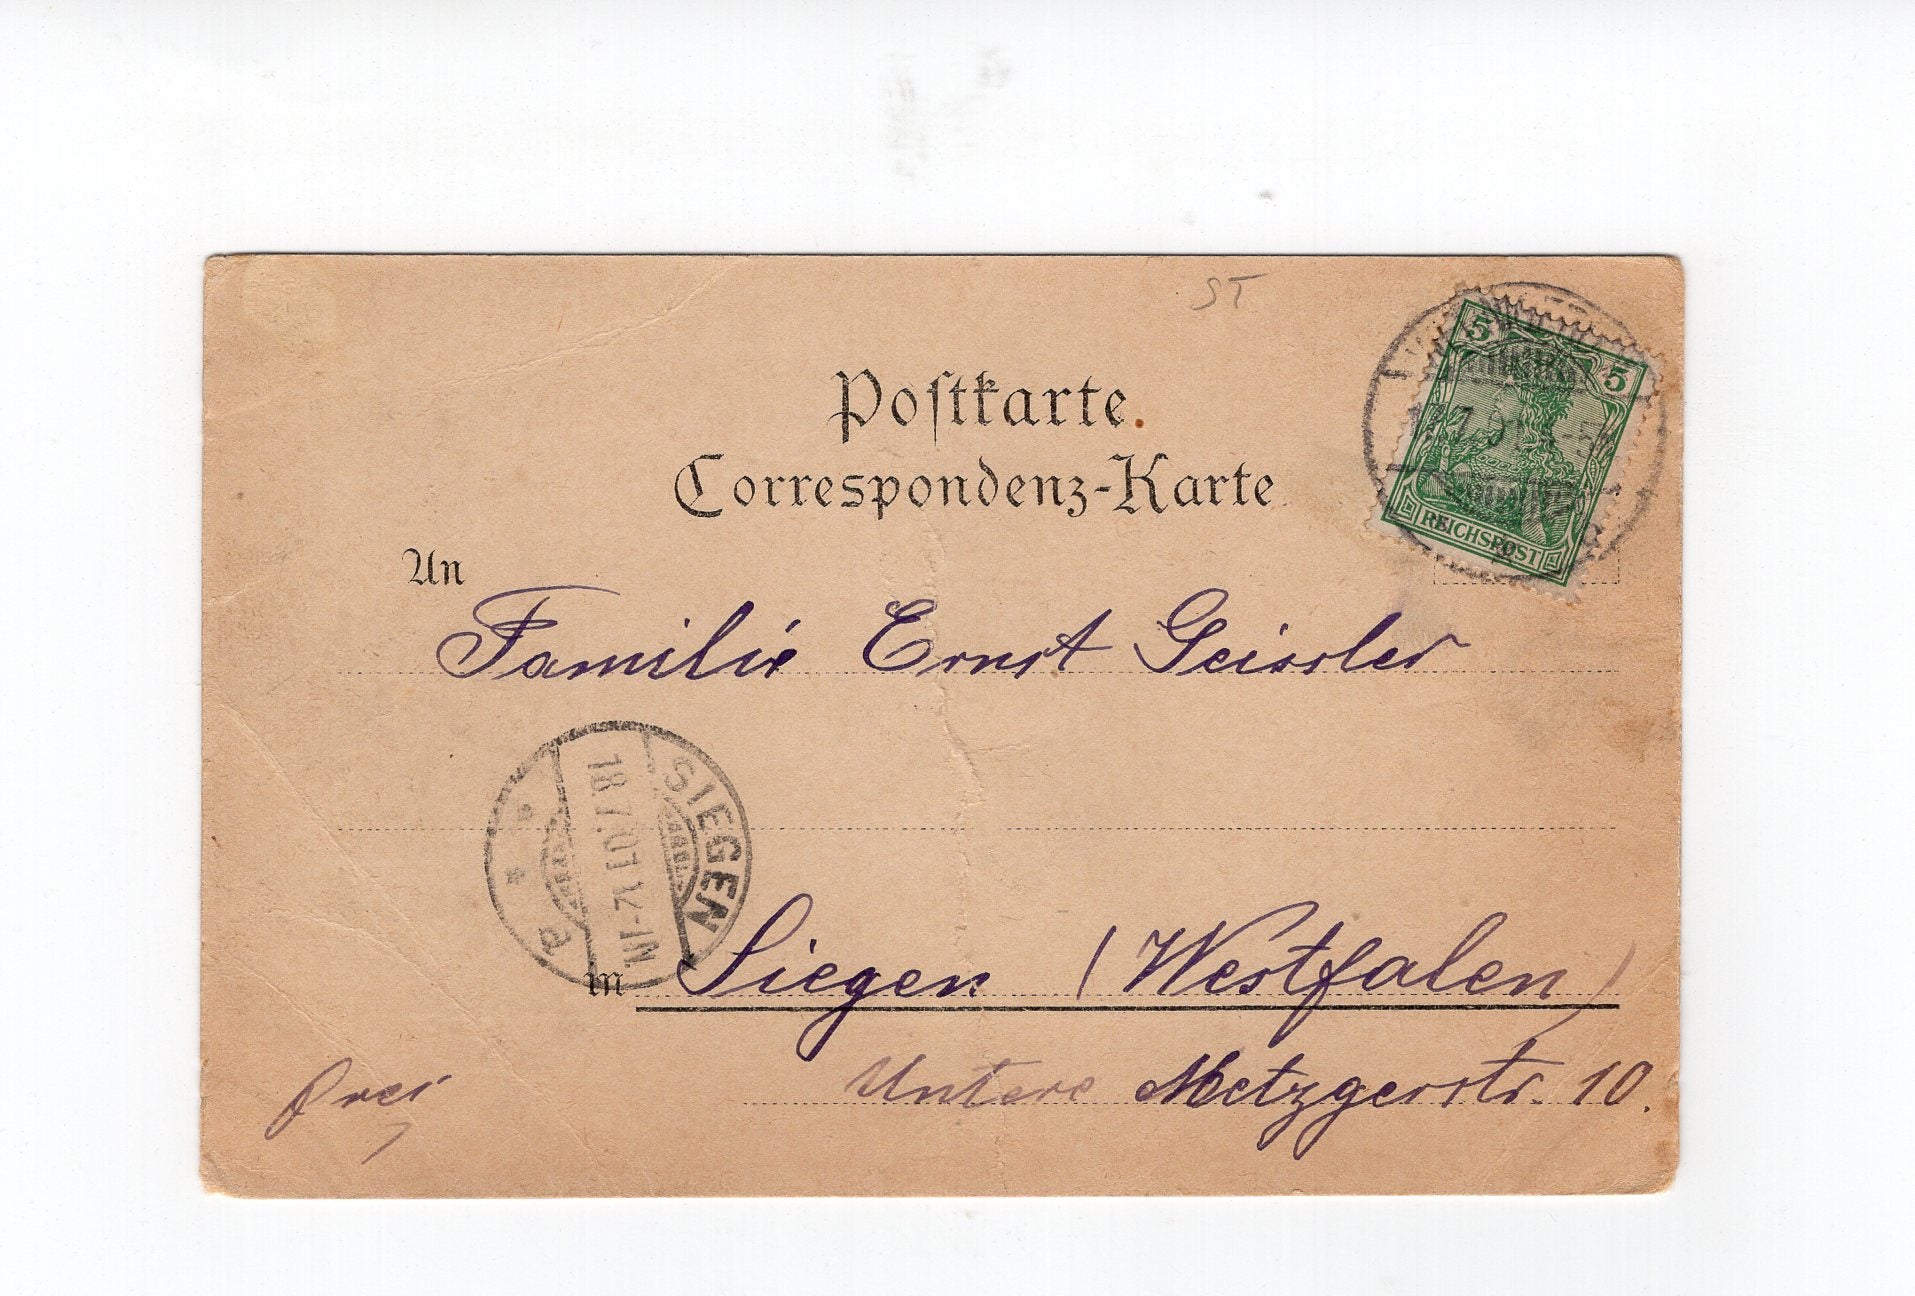 ST
5 5
REICHSPOST
Postkarte.
Correspondenz-Karte
An
Familie Ernst Geissler
SIEGEN
18.7.01. 7-8N.
a
in Siegen (Westfalen)
Untere Metzgerstr. 10.